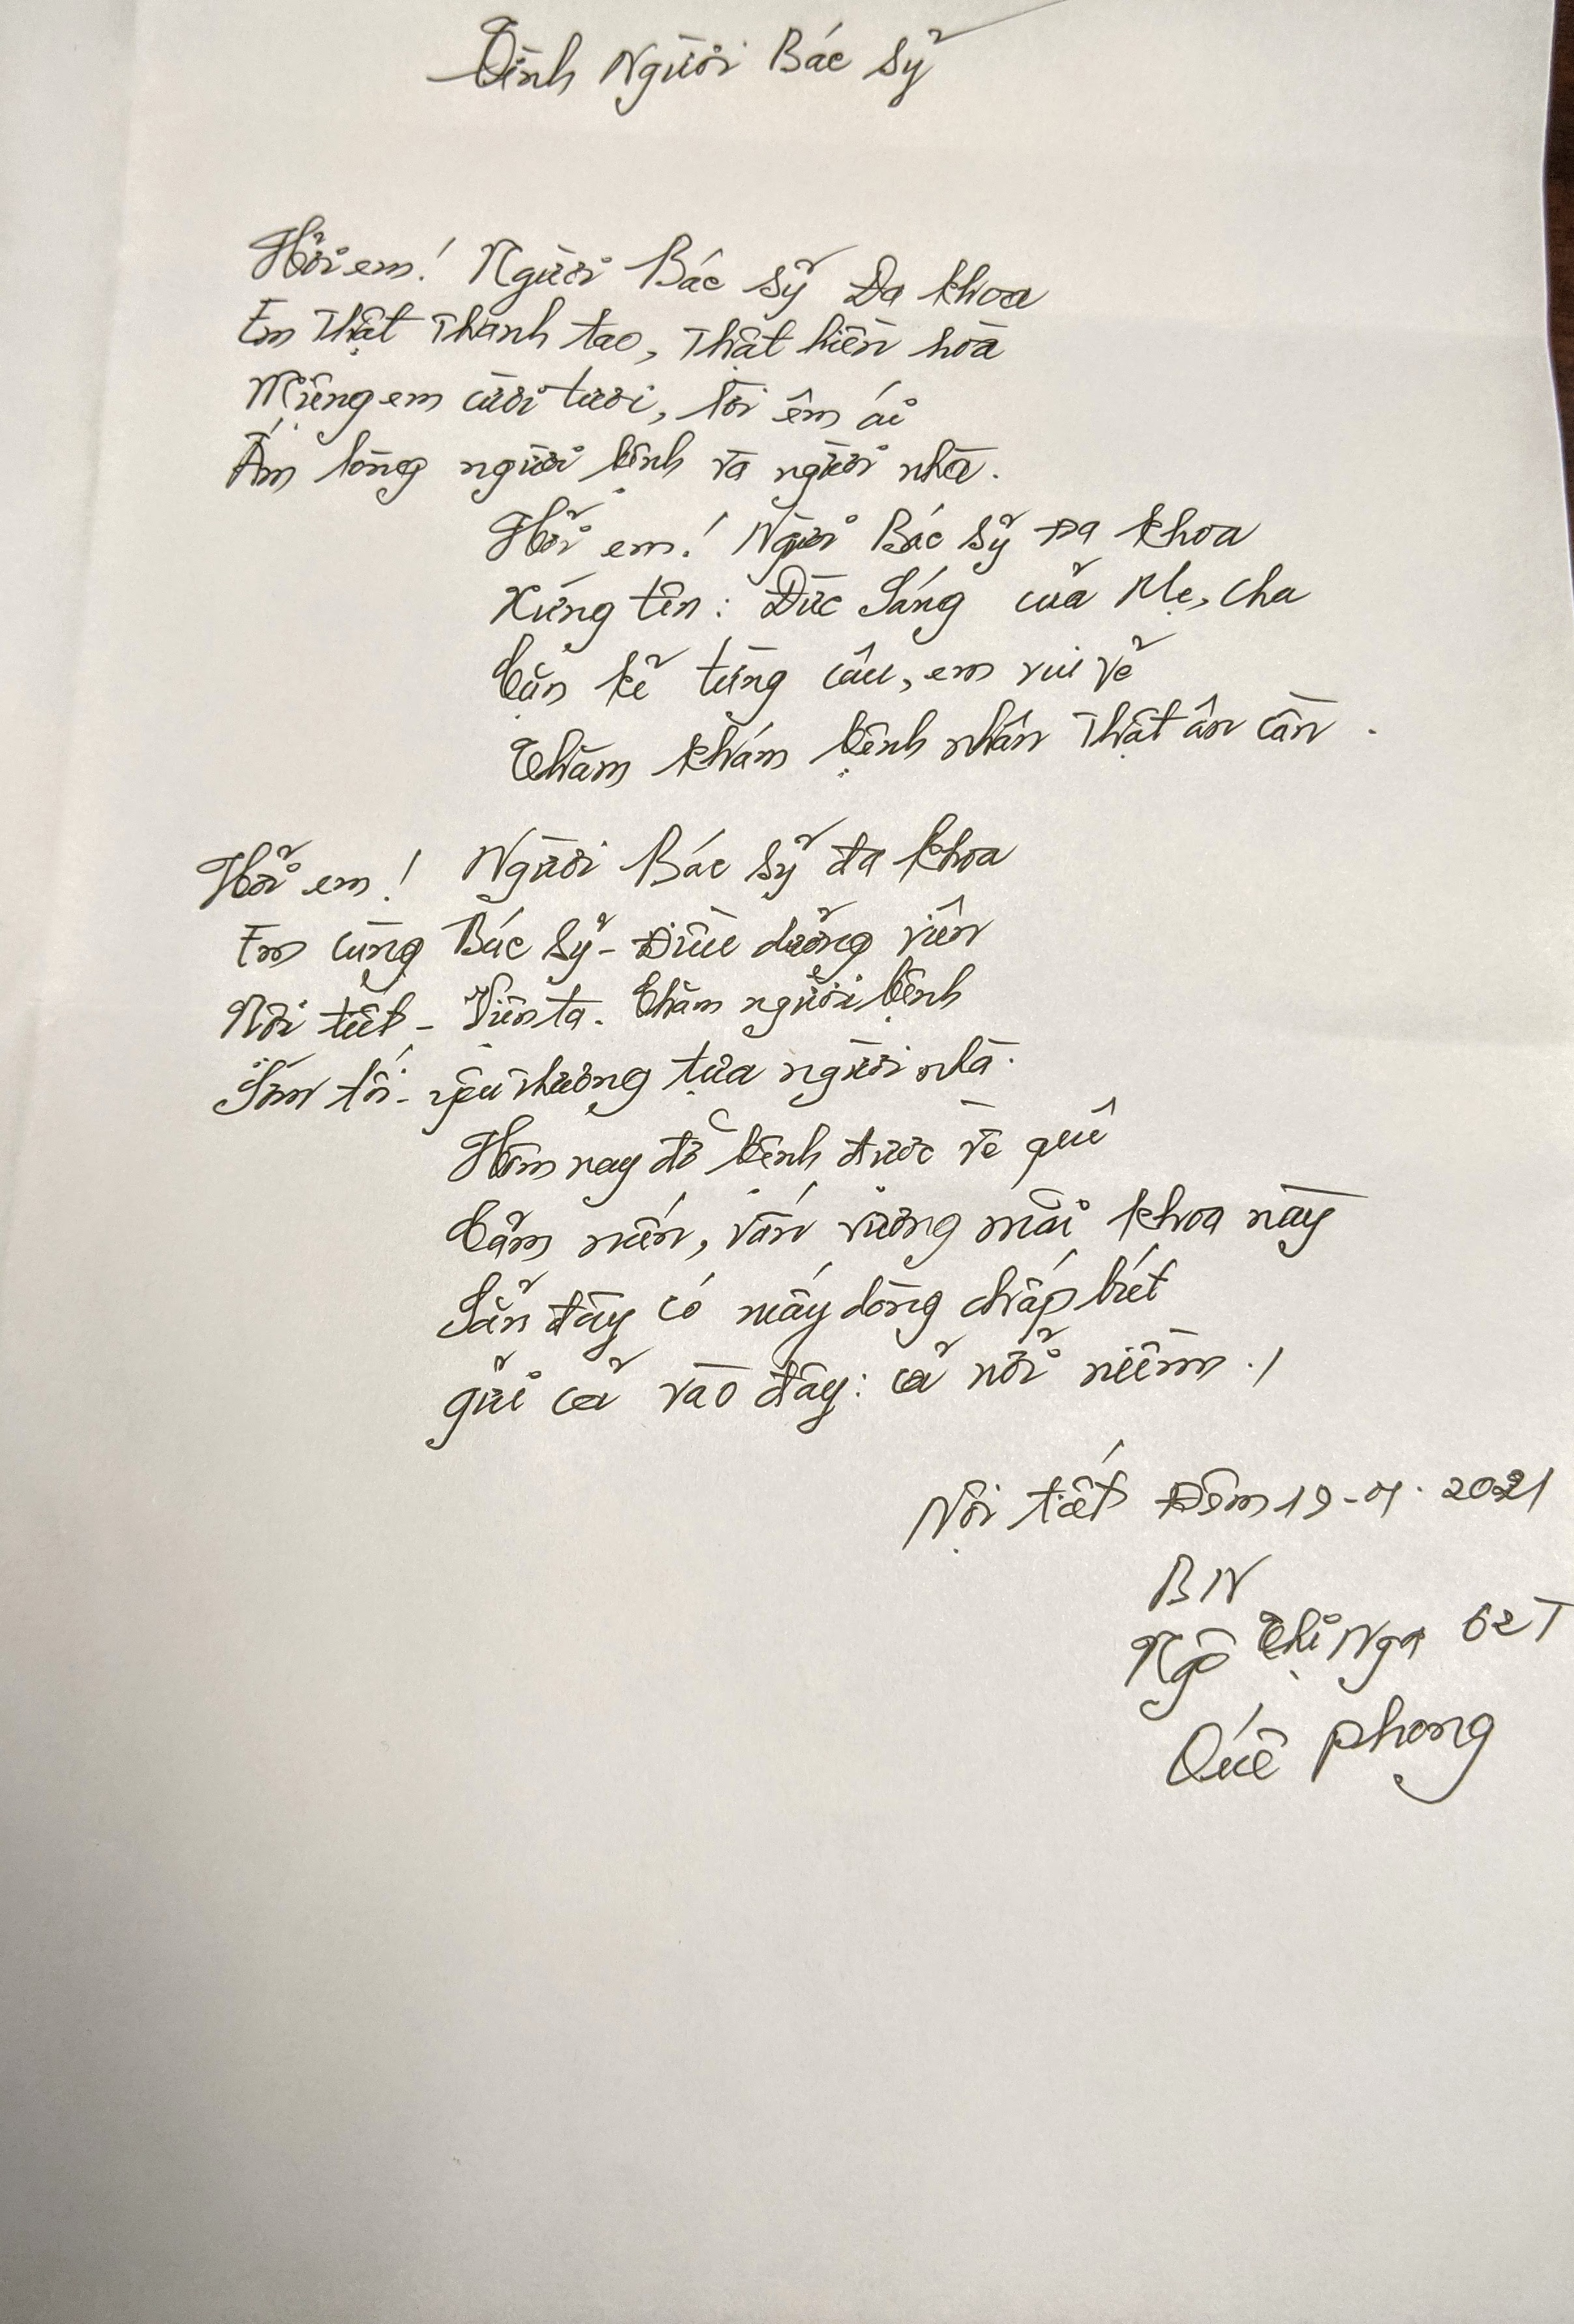 Tình Người Bác Sỹ
Hỡi em! Người Bác sỹ Đa khoa
Em Thật Thanh tao, Thật hiền hòa
Miệng em cười tươi, lời êm ái
Ấm lòng người bệnh và người nhà.
Hỡi em! Người Bác sỹ Đa khoa
Xứng tên: Đức Sáng của Mẹ, Cha
Cặn kẽ từng câu, em vui vẻ
Thăm khám bệnh nhân Thật ân cần.
Hỡi em! Người Bác sỹ đa khoa
Em cùng Bác sỹ - Điều dưỡng viên
Nội tiết - Viện ta. Thăm người bệnh
Sớm tối - yêu thương tựa người nhà.
Hôm nay đỡ bệnh được về quê
Cảm mến, vấn vương mãi khoa này
Sẵn đây có mấy dòng chắp bút
gửi cả vào đây: cả nỗi niềm./
Nội tiết Đêm 19-01.2021
BN
Ngô Thị Nga 62T
Quế phong